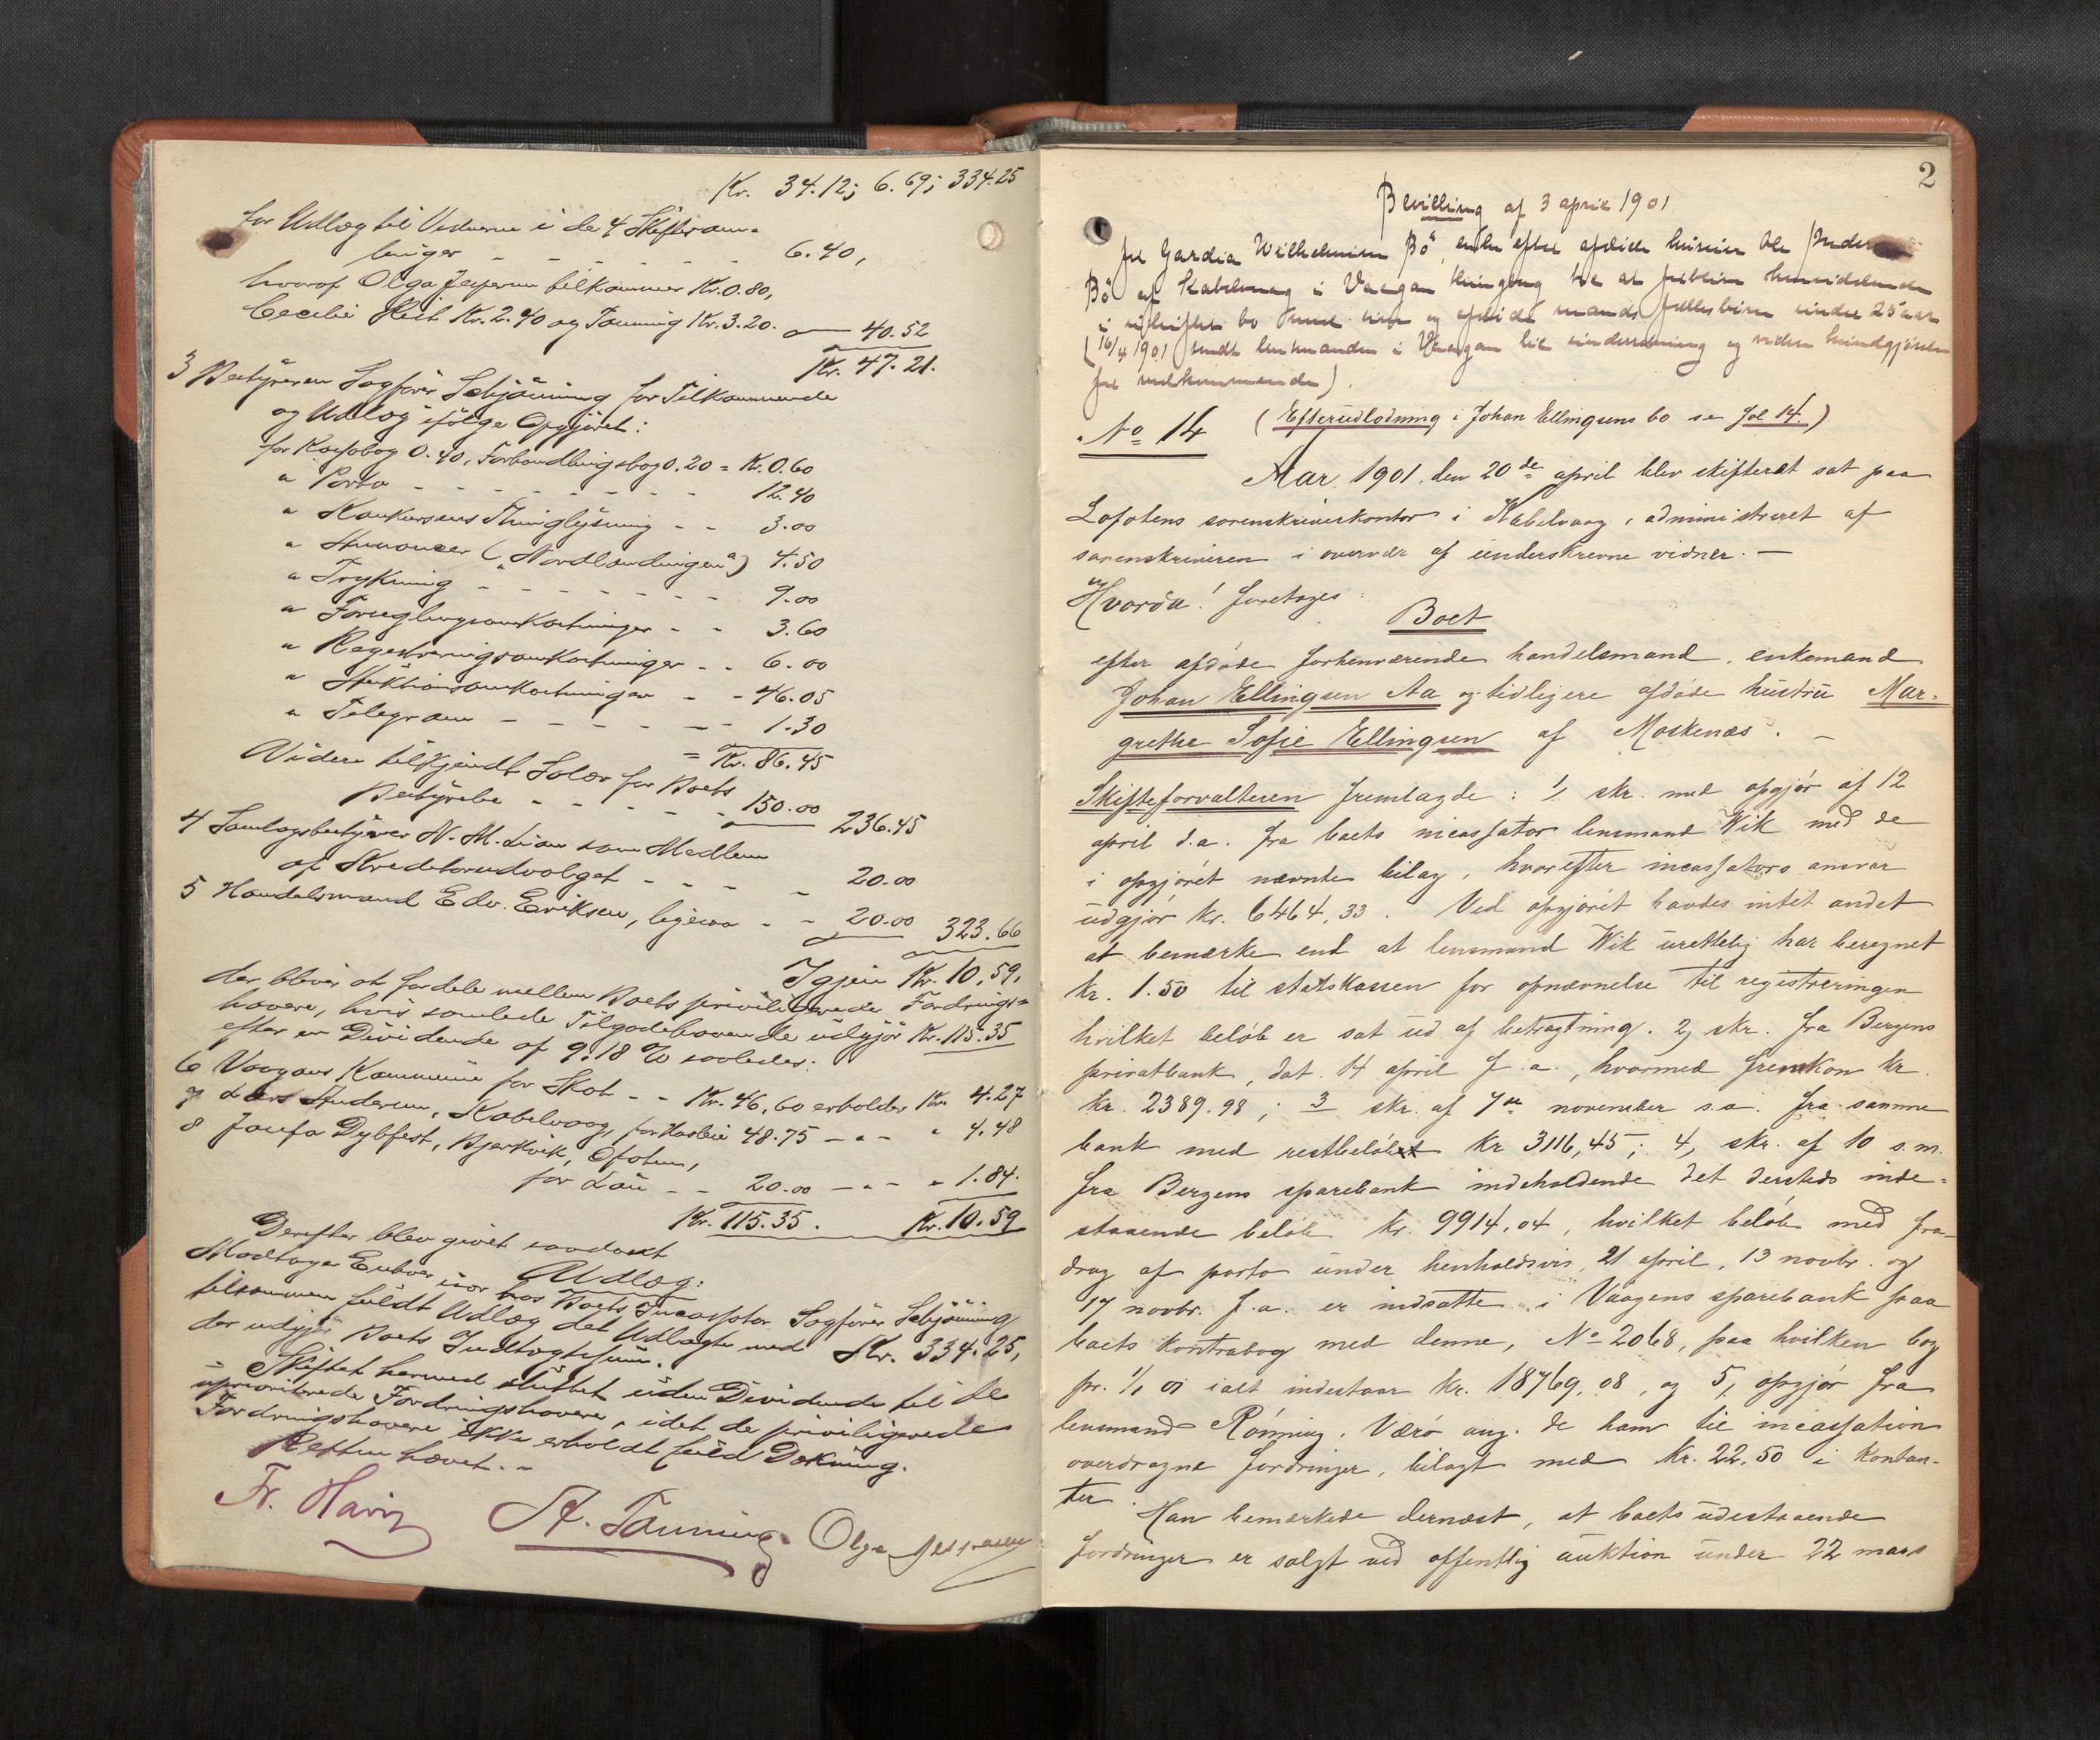 Kr. 34.12; 6.69; 334.25
for Udlæg til Vidnerne i de 4 Skiftesam-
linger - - - - - - 6.40,
hvoraf Olga Jespersen tilkommer Kr. 0.80,
Cecilie Kr. 2.40 og Tønning Kr. 3.20. — 40.52
Kr. 47.21.
3 Bestyreren Sagfører Schjønning for Tilkommende
og Udlæg ifølge Opgjøret:
for Kassabog 0.40, Forhandlingsbog 0.20 = Kr. 0.60
" Porto - - - - - - - - 12.40
" Konkursens Thinglysning - - 3.00
" Annoncer („Nordlændingen“) 4.50
" Trykning - - - - - - - 9.00
" Forseglingsomkostninger - - 3.60
" Registreringsomkostninger - - 6.00
" Auktionsomkostninger - - 46.05
" Telegram - - - - - - 1.30
= Kr. 86.45
Videre tilkjendt Salær for Boets
Bestyrelse - - - - - 150.00 236.45
4 Samlagsbestyrer N. M. Lian som Medlem
af Kreditorudvalget - - - - 20.00
5 Handelsmand Edv. Eriksen, ligesaa - - 20.00 323.66
Igjen Kr. 10,59,
der bliver at fordele mellem Boets priviligerede Fordrings-
havere, hvis samlede Tilgodehavende udgjør Kr. 115.35
efter en Dividende af 9.18 % saaledes:
6 Vaagans Kommune for Skat - - Kr. 46,60 erholder Kr. 4.27
7 Lars Andersen, Kabelvaag, for Husleie 48.75 — " — " 4.48
8 Josefa Dybfest, Bjerkvik, Ofoten,
for Løn - - 20.00 — " — " 1.84.
Kr. 115.35. Kr. 10.59
Derefter blev givet saadant
Udlæg:
Modtager Enhver især hos Boets Incassator Sagfører Schjønning
tilsammen fuldt Udlæg det Udlagte med Kr. 334.25,
der udgjør Boets Indtægtssum.
Skiftet hermed sluttet uden Dividende til de
uprioriterede Fordringshavere, idet de priviligerede
Fordringshavere ikke erholdt fuld Dækning.
Retten hævet. -
Fr. A. Tønning Olga Jespersen
2
Bevilling af 3 april 1901
for Gardia Wilhelmine Bö, enke efter afdöde Ole
Bö af Kabelvaag i Vaagan thinglag til at forblive hensiddende
i uskiftet bo med sin og afdöde mands fællesbörn under 25 aar
(16/4 1901 sendt lensmanden i Vaagan til underretning og videre kundgjörelse
for vedkommende).
No 14 (Efterudlodning i Johan Ellingsens bo se fol 14.)
Aar 1901 den 20de april blev skifteret sat paa
Lofotens sorenskriverkontor i Kabelvaag, administreret af
sorenskriveren i overvær af underskrevne vidner. —
Hvorda! foretoges:
Boet
efter afdøde forhenværende handelsmand, enkemand
Johan Ellingsen Aa og tidligere afdøde hustru Mar-
grethe Sofie Ellingsen af Moskenæs. —
Skifteforvalteren fremlagde: 1/ skr. med opgjør af 12
april d.a. fra boets incassator lensmand Wik med de
i opgjøret nævnte bilag, hvorefter incassators ansvar
udgjør kr. 6464,33. Ved opgjøret havdes intet andet
at bemærke end at lensmand Wik urettelig har beregnet
kr. 1.50 til statskassen for opnævnelse til registreringen
hvilket beløb er sat ud af betragtning. 2, skr. fra Bergens
privatbank, dat. 14 april f.a., hvormed fremkom kr.
kr. 2389.98; 3 skr. af 7de november s.a. fra samme
bank med restbeløbet kr 3116,45; 4, skr. af 10 s.m.
fra Bergens sparebank indeholdende det dersteds inde-
staaende beløb kr. 9914,04, hvilket beløb med fra-
drag af porto under henholdsvis 21 april, 13 novbr. og
17 novbr. f.a. er indsatte i Vaagens sparebank paa
boets kontrabog med denne, No 2068, paa hvilken bog
pr. 1/1 01 ialt indestaar kr. 18769,08, og 5, opgjør fra
lensmand Rønning, Værø ang. de ham til incassation
overdragne fordringer, bilagt med kr. 22,50 i kontan-
ter.
Han bemærkede dernæst, at boets udestaaende
fordringer er solgt ved offentlig auktion under 22 mars